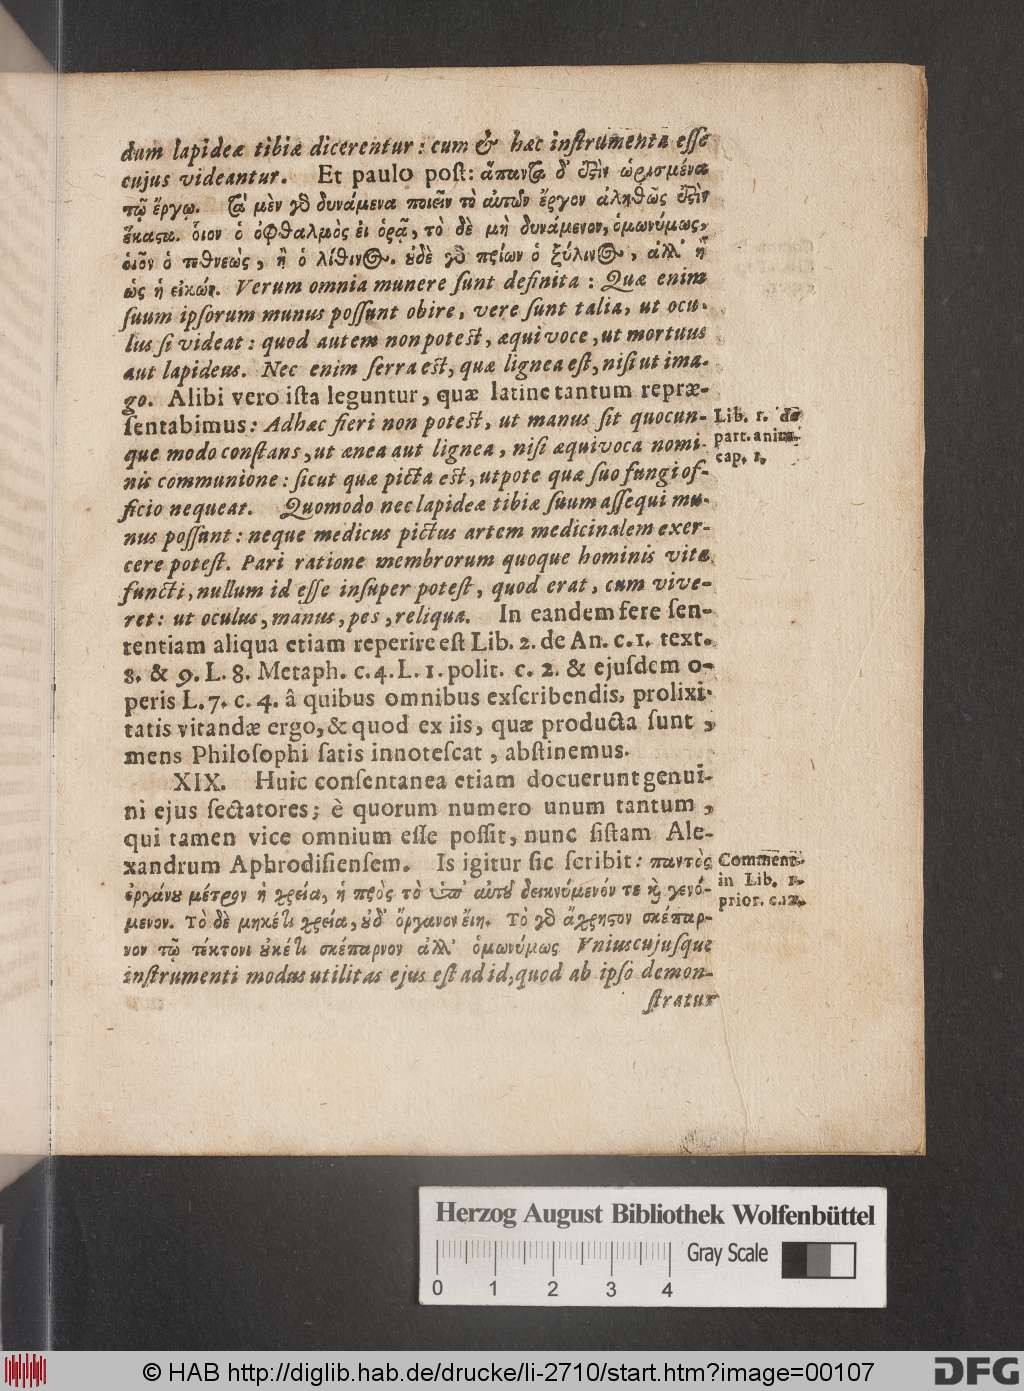 dam lapideæ tibiæ dicerentur: cum & hæc inſtrumenta eſſe
cujus videantur. Et paulo poſt: ἅπαντα δ' ἐστὶν ὡρισμένα
τῷ ἔργῳ. τὰ μὲν γὸ δυνάμενα ποιεῖν τὸ αὑτῶν ἔργον ἀληθῶς ἐστὶν
ἕκαστα. ὁῖον ὁ ὀφθαλμὸς εἰ ὁρᾷ, τὸ δὲ μὴ δυνάμενον, ὁμωνύμως,
ὁιον ὁ τεθνεὼς, ἢ ὁ λίθινος. ουδὲ γὸ πρίων ὁ ξύλινος, ἀλλ' ἢ
ὡς ἡ εἰκών. Verum omnia munere ſunt definita: Quæ enim
ſuum ipſorum munus poſſunt obire, vere ſunt talia, ut ocu-
lus ſi videat: quod autem non poteſt, æquivoce, ut mortuus
aut lapideus. Nec enim ſerra eſt, quæ lignea eſt, niſi ut ima-
go. Alibi vero iſta leguntur, quæ latine tantum repræ-
ſentabimus: Adhæc fieri non poteſt, ut manus ſit quocun-
Lib. 1. de
part. anim.
cap. 1.
que modo conſtans, ut ænea aut lignea, niſi æquivoca nomi-
nis communione: ſicut quæ picta eſt, utpote quæ ſuo fungi of-
ficio nequeat. Quomodo nec lapideæ tibiæ ſuum aſſequi mu-
nus poſſunt: neque medicus pictus artem medicinalem exer-
cere poteſt. Pari ratione membrorum quoque hominis vita
functi, nullum id eſſe inſuper poteſt, quod erat, cum vive-
ret: ut oculus, manus, pes, reliqua. In eandem fere ſen-
tentiam aliqua etiam reperire eſt Lib. 2. de An. c. 1. text.
8. & 9. L. 8. Metaph. c. 4. L. 1. polit. c. 2. & ejuſdem o-
peris L. 7. c. 4. â quibus omnibus exſcribendis, prolixi-
tatis vitandæ ergo, & quod ex iis, quæ producta ſunt,
mens Philoſophi ſatis innoteſcat, abſtinemus.
XIX. Huic conſentanea etiam docuerunt genui-
ni ejus ſectatores; è quorum numero unum tantum,
qui tamen vice omnium eſſe poſſit, nunc ſiſtam Ale-
xandrum Aphrodiſienſem. Is igitur ſic ſcribit: παντὸς
Comment.
in Lib. 1.
prior. c. 12.
ὀργάνου μέτρον ἡ χρεία, ἡ πρὸς τὸ ὑπ' αὐτοῦ δεικνύμενόν τε καὶ γενό-
μενον. Τὸ δὲ μηκέτι χρεία, ουδ' ὄργανον ἔιη. Τὸ γὸ ἄχρηστον σκέπαρ-
νον τῷ τέκτονι ουκέτι σκέπαρνον ἀλλ' ὁμωνύμως Vniuscujusque
inſtrumenti modus utilitas ejus eſt ad id, quod ab ipſo demon-
ſtratur
Herzog August Bibliothek Wolfenbüttel
Gray Scale
0 1 2 3 4
© HAB http://diglib.hab.de/drucke/li-2710/start.htm?image=00107
DFG